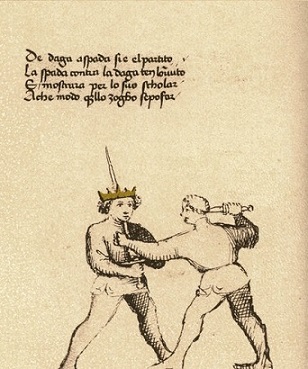 De daga aspada sie elpartito
La spada contra la daga ten loīuito
E mostrara per lo suo scholar
A che modo q̄llo zogho sepofar